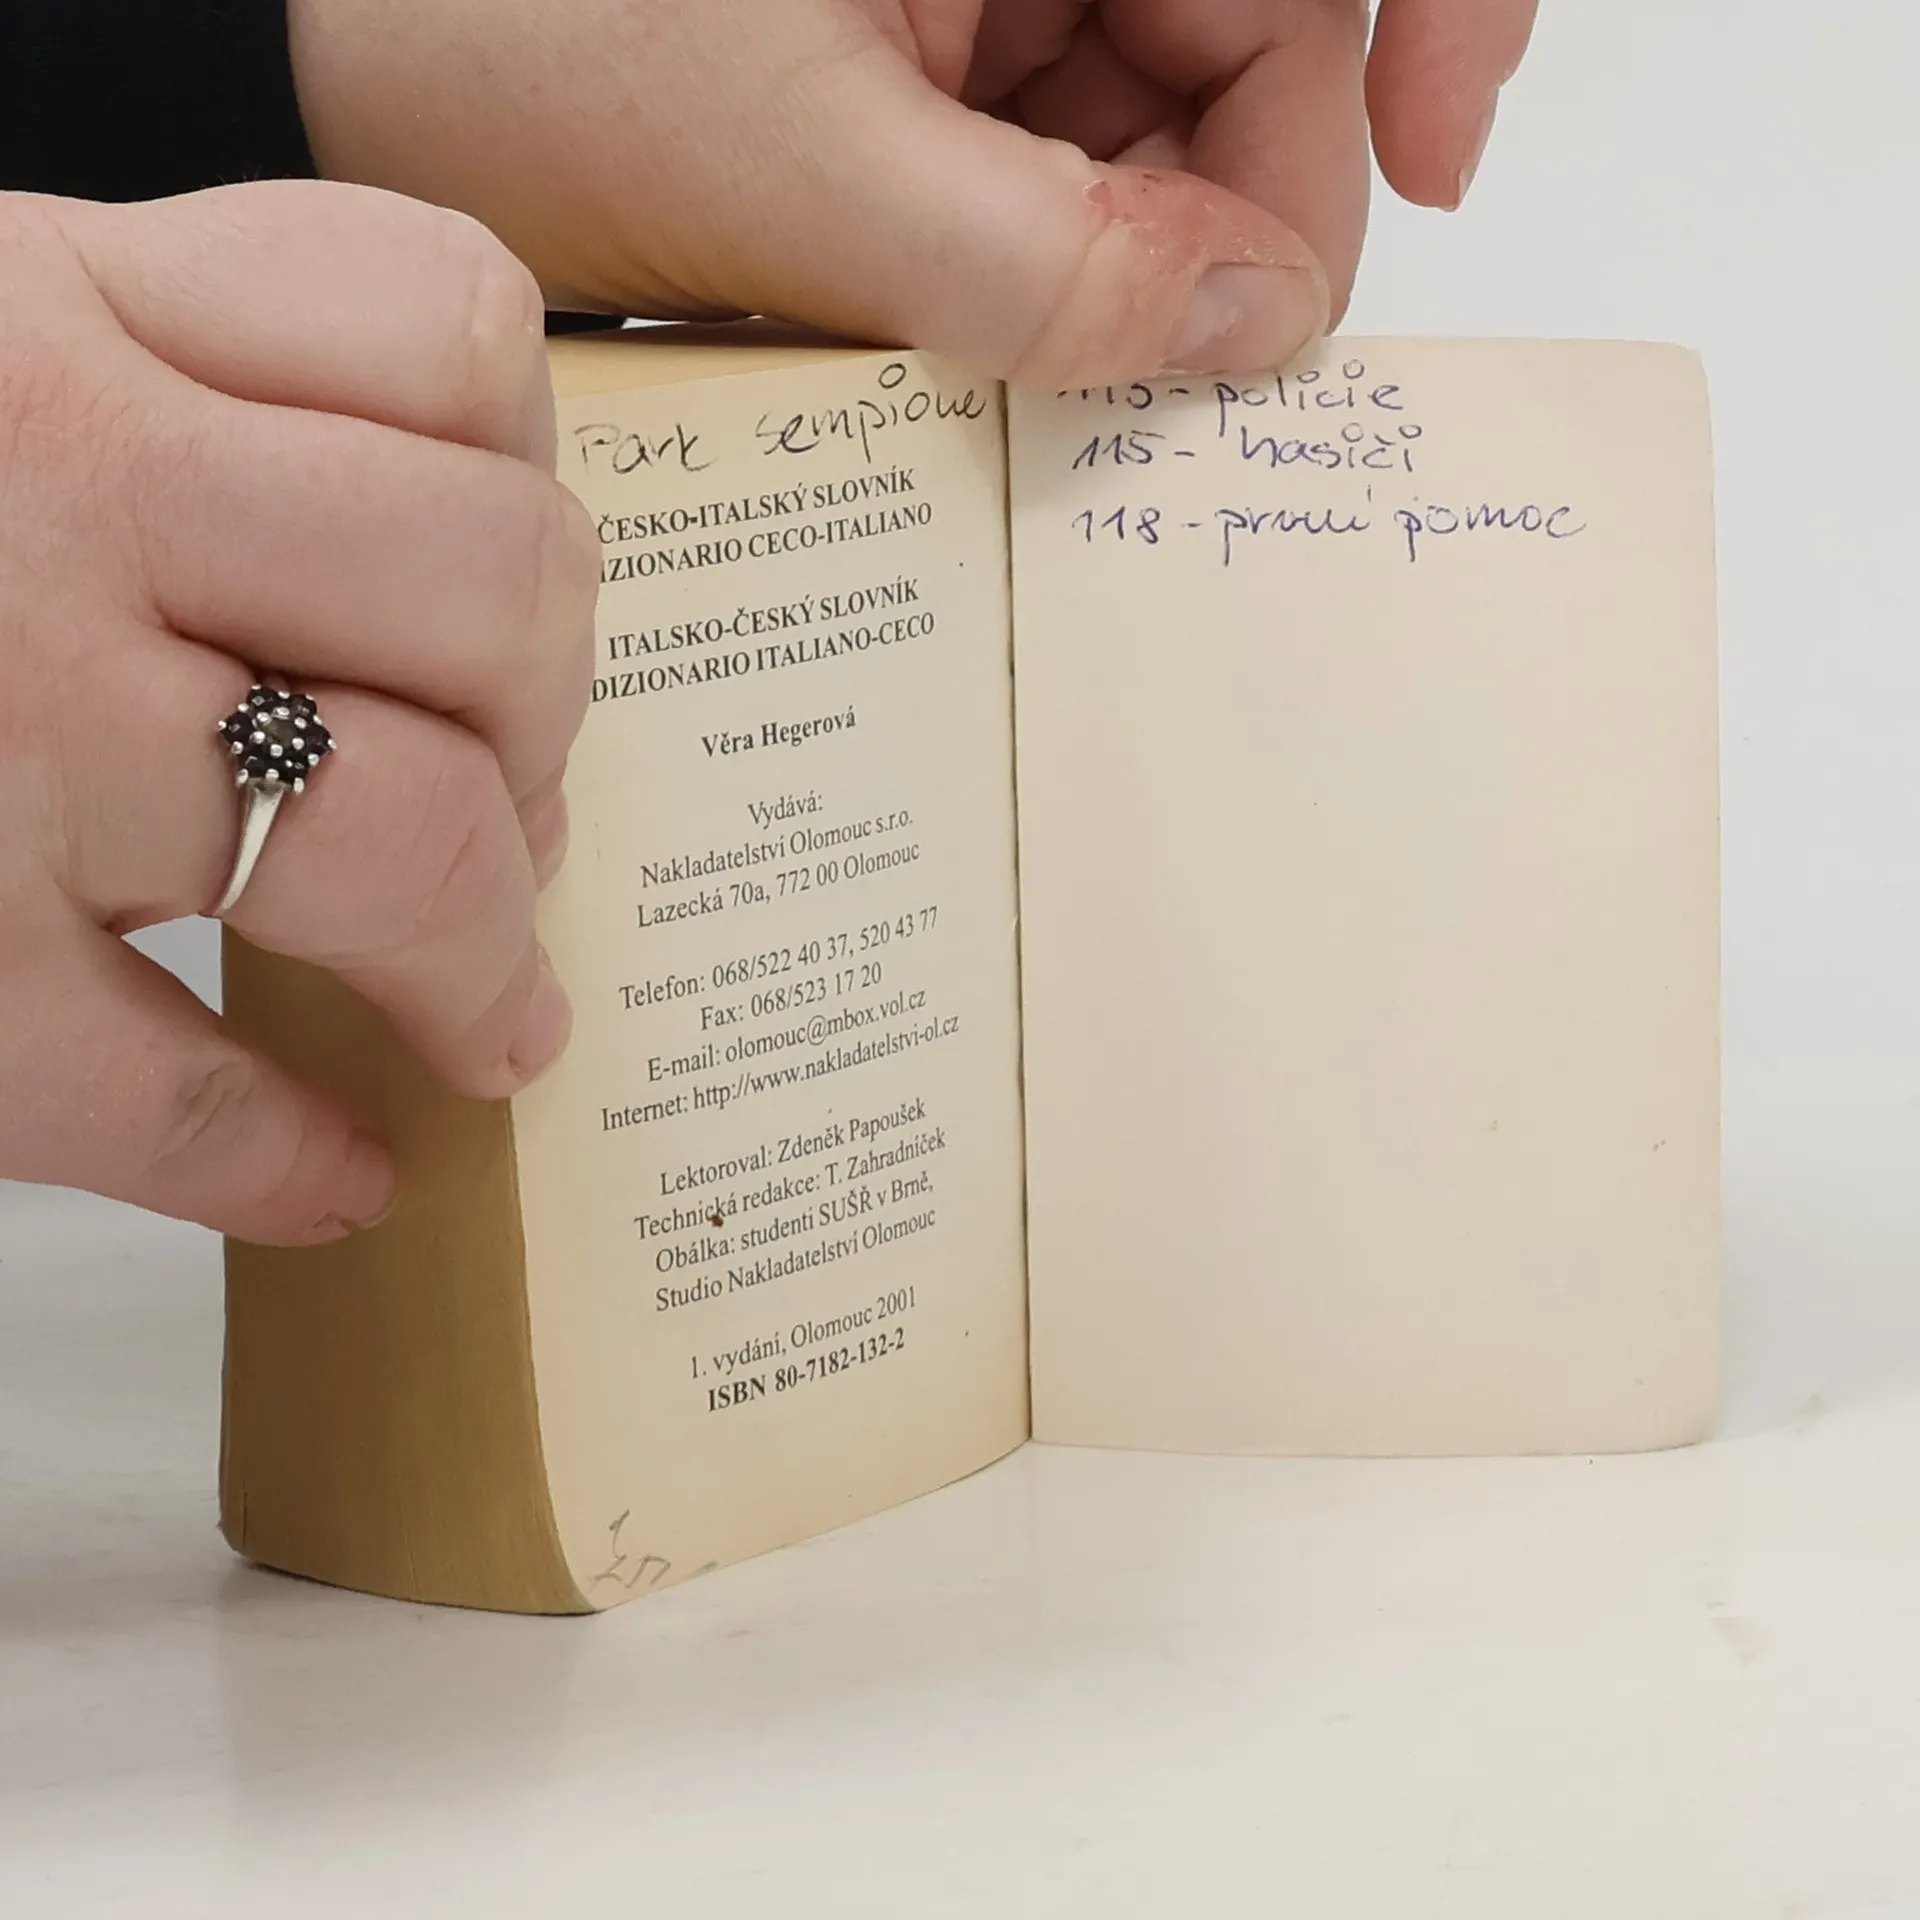 Park sempione
ČESKO-ITALSKÝ SLOVNÍK
IZIONARIO CECO-ITALIANO
ITALSKO-ČESKÝ SLOVNÍK
DIZIONARIO ITALIANO-CECO
Věra Hegerová
Vydává:
Nakladatelství Olomouc s.r.o.
Lazecká 70a, 772 00 Olomouc
Telefon: 068/522 40 37, 520 43 77
Fax: 068/523 17 20
E-mail: olomouc@mbox.vol.cz
Internet: http://www.nakladatelstvi-ol.cz
Lektoroval: Zdeněk Papoušek
Technická redakce: T. Zahradníček
Obálka: studenti SUŠŘ v Brně,
Studio Nakladatelství Olomouc
1. vydání, Olomouc 2001
ISBN 80-7182-132-2
- policie
115 - hasiči
118 - první pomoc